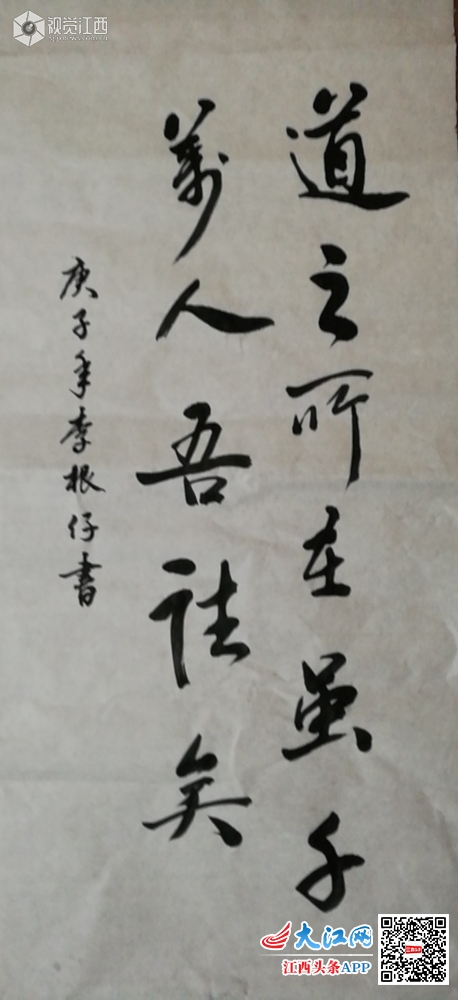 视觉江西
道之所在虽千
萬人吾往矣
庚子年李根仔書
大江网
江西头条APP